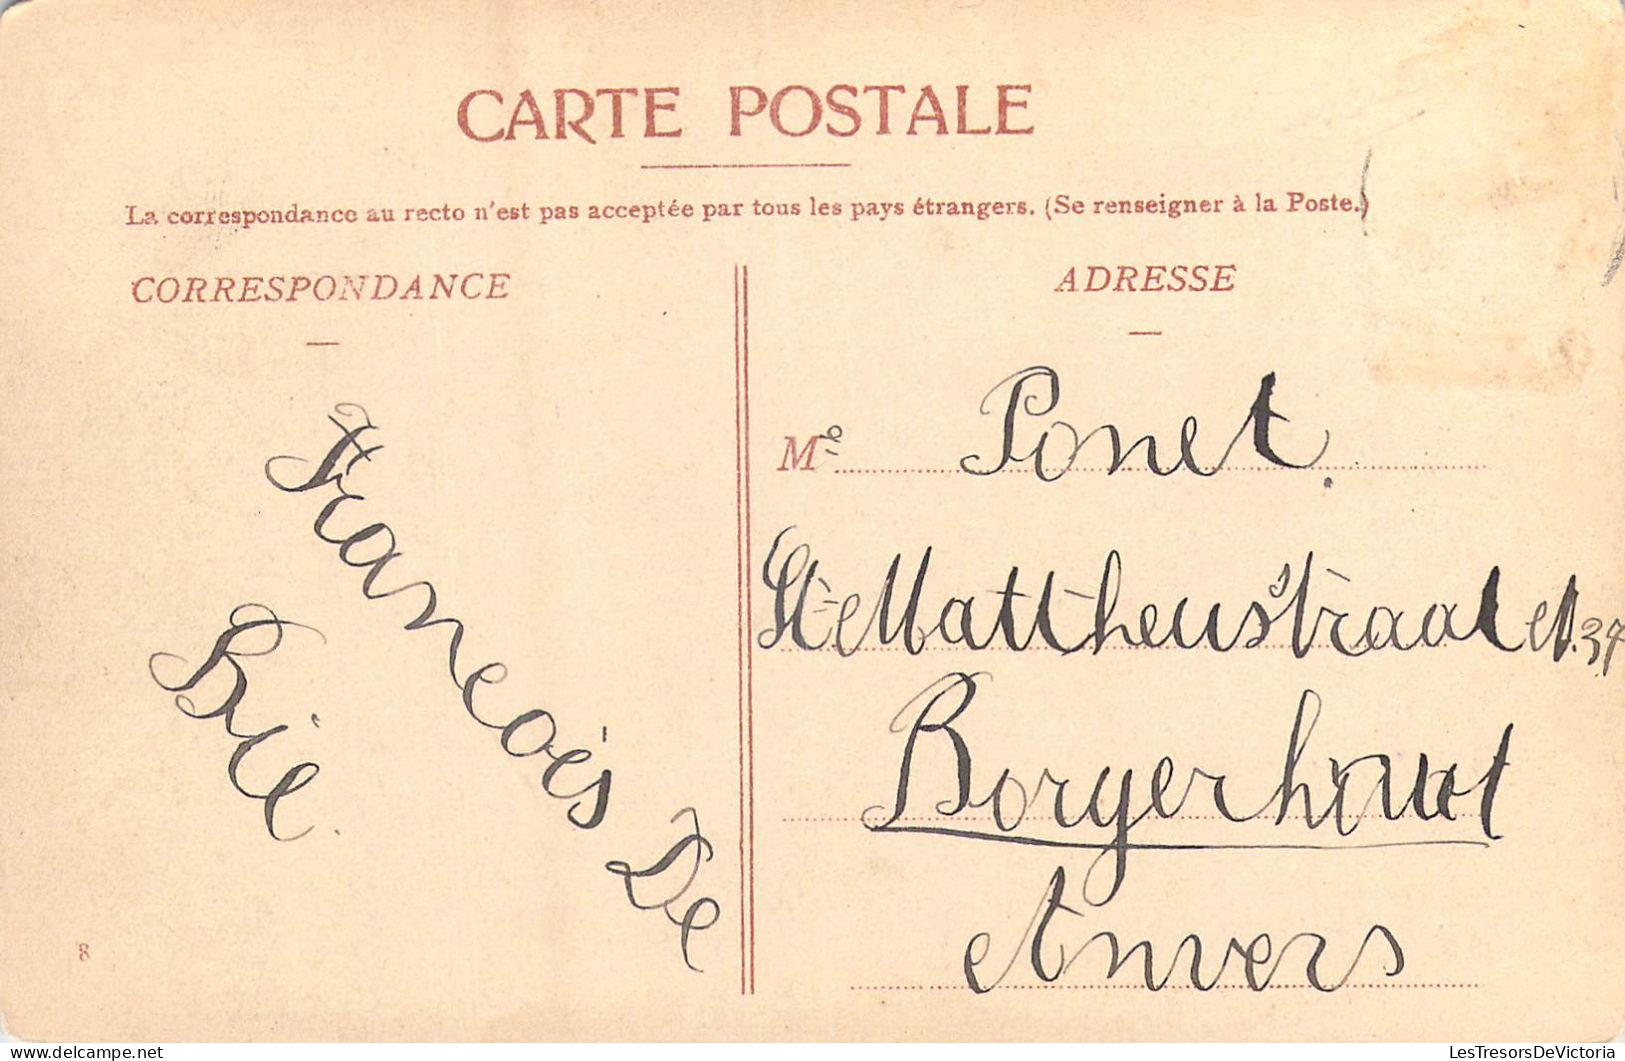 CARTE POSTALE
La correspondance au recto n'est pas acceptée par tous les pays étrangers. (Se renseigner à la Poste.)
CORRESPONDANCE
François De
Bie.
8
ADRESSE
M Ponet.
St Mattheusstraat N. 37
Borgerhout
Anvers
LesTresorsDeVictoria
https://www.delcampe.net